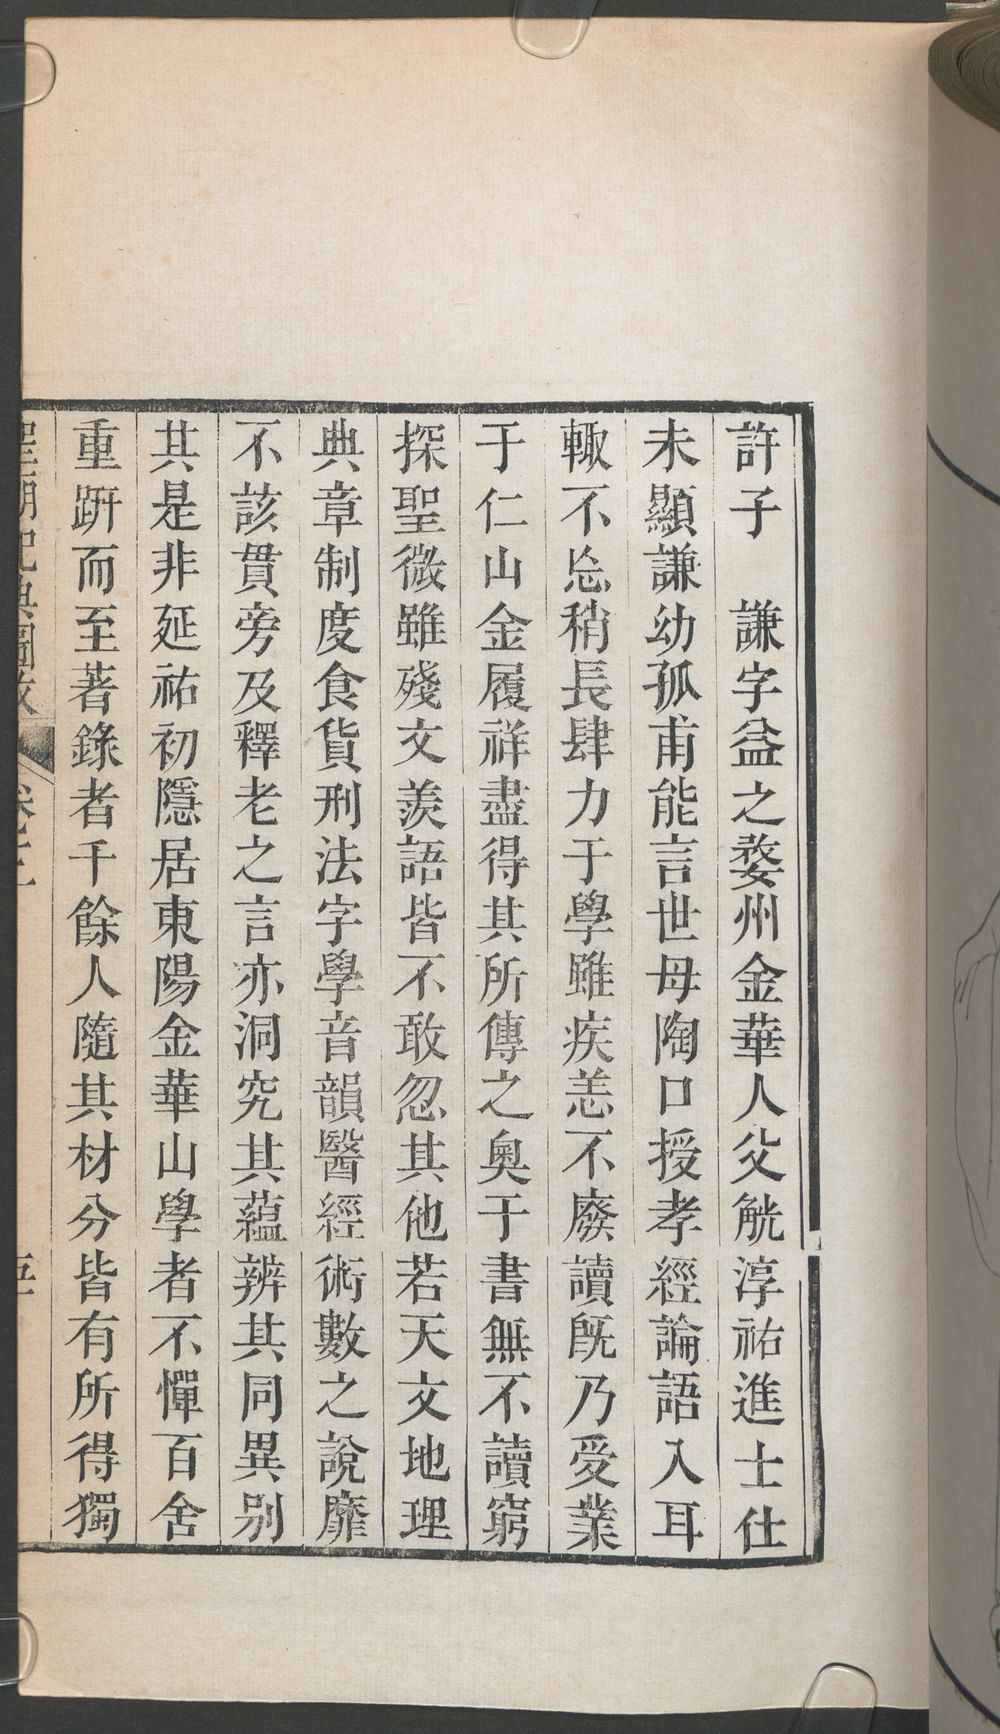 許子　謙字益之婺州金華人父觥淳祐進士仕
未顯謙幼孤甫能言世母陶口授孝經論語入耳
輙不忘稍長肆力于學雖疾恙不廢讀旣乃受業
于仁山金履祥盡得其所傳之奧于書無不讀窮
探聖微雖殘文羨語皆不敢忽其他若天文地理
典章制度食貨刑法字學音韻醫經術數之說靡
不該貫旁及釋老之言亦洞究其蘊辨其同異別
其是非延祐初隱居東陽金華山學者不憚百舍
重趼而至著錄者千餘人隨其材分皆有所得獨